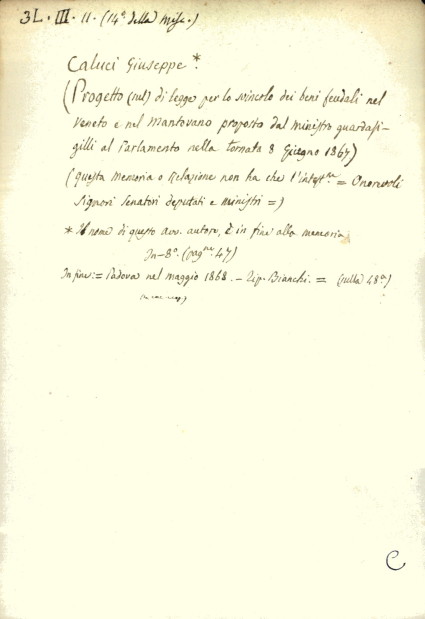 3L. III. 11. (14ª della Misc.)
Caluci Giuseppe *.
(Progetto (sul) di legge per lo svincolo dei beni feudali nel
Veneto e nel Mantovano proposto dal ministro guardasi-
gilli al Parlamento nella tornata 8 Giugno 1867)
(questa Memoria o Relazione non ha che l'intestne = Onorevoli
Signori Senatori deputati e ministri =)
* Il nome di questo avv. autore, è in fine alla memoria
In-8º. (pagne. 47)
In fine: = Padova nel maggio 1868. - Tip. Bianchi. = (sulla 48ª)
C